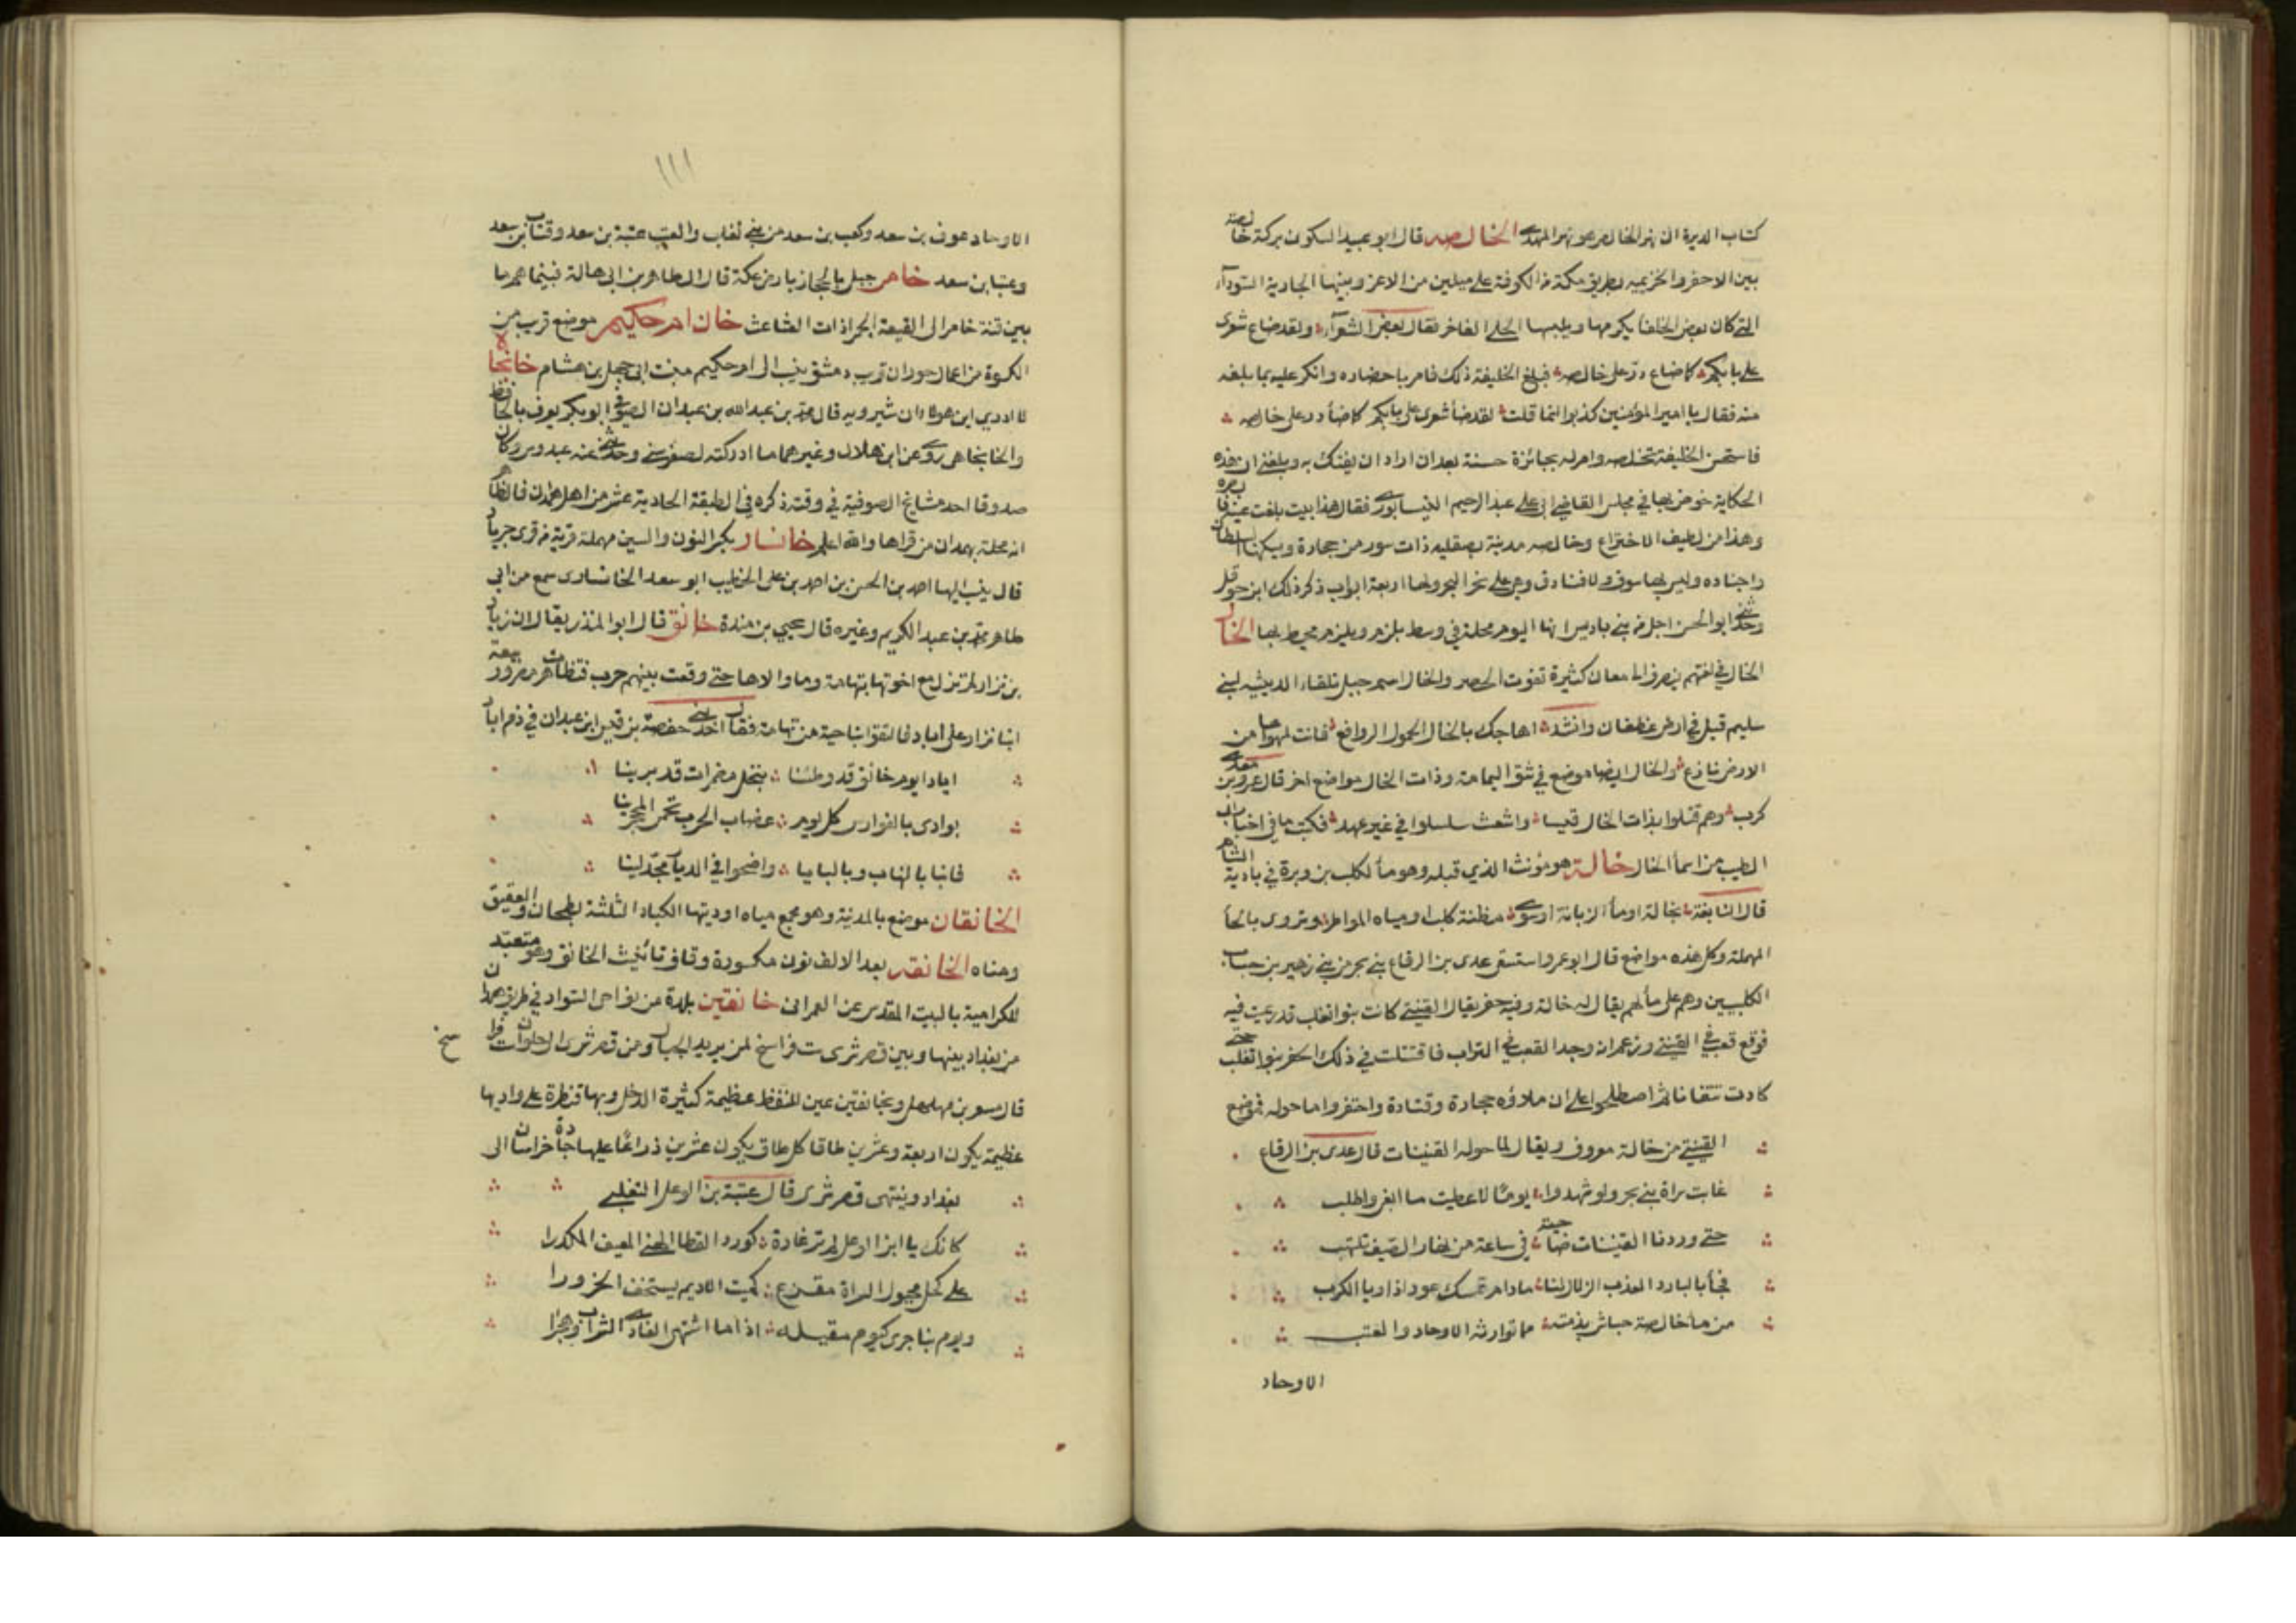 كتاب الديرة ان نهر الخالص هو نهر المهدي الخالصه قال ابو عبيد السكوني بركة خالصة
بين الاجفر والخزيميه بطريق مكة من الكوفة على ميلين من الاعز وبينها الجارية السودآء
التي كان بعض الخلفا يكرمها ويلبسها الحلي الفاخر فقال بعض الشعرآء ولقد ضاع شعرى
على بابكم كما ضاع در على خالصه فبلغ الخليفة ذلك فامر باحضاره وانكر عليه بما بلغه
منه فقال يا امير المؤمنين كذبوا انما قلت لقد ضأ شعرى على بابكم كما ضأ در على خالصه
فاستحسن الخليفة تخلصه وامر له بجائزة حسنة بعد ان اراد ان يفتك به وبلغني ان هذه
الحكاية خوض بها في مجلس القاضي ابى على عبد الرحيم النيسابورى فقال هذا بيت بلغت عينه فابصره
وهذا من لطيف الاختراع وخالصه مدينة بصقليه ذات سور من حجارة ويسكنها السلطان
واجناده وليس بها سوق ولا فنادق وهى على نحر البحر ولها اربعة ابواب ذكر ذلك ابن حوقل
وحدثنى ابو الحسن اجل من بنى باديس انها اليوم محلة في وسط بلرم وبلرم محيط بها الخال
الخال في لغتهم ينصرف الى معان كثيرة تفوت الحصر والخال اسم جبل تلقاء الدثينه لبنى
سليم قبل في ارض غطفان وانشد اهاجك بالخال الحمول الروافع فانت لمهواها من
الارض نازع والخال ايضا موضع في شق اليمامة وذات الخال مواضع اخر قال عمرو بن معدى
كرب وهم قتلوا بذات الخال قيسا واشعث سلسلوا في غير عهد فكتبت ما في اخبار ابى
الطيب من اسمأ الخال خالة هو مؤنث الذي قبله وهو مأ لكلب بن وبرة في بادية الشام
قال النابغة بخالة او مأ الزبانة او سوى مظنة كلب او مياه المواطر وتروى بالحأ
المهملة وكل هذه مواضع قال ابو عمرو استسقى عدى بن الرقاع بنى بحر من بنى زهير بن جناب
الكلبيين وهم على مأ لهم يقال له خالة وفيه حفر يقال القنيني كانت بنو تغلب قد رعيت فيه
فوقع قعب في القنيني وزعم انه وجد القعب في التراب فاقتتلت في ذلك الحفر بنو تغلب حتى
كادت تتفانا ثم اصطلحوا على ان ملاؤه حجارة وقتادة واحتفروا ما حوله فموضع
القنيني من خالة معروف ويقال لما حوله القنينات قال عدى بن الرقاع
غابت سراة بنى بحر ولو شهدوا يومًا لاعطيت ما ابغى واطلب
حتى وردنا القنينات ضاحية في ساعة من نهار الصيف تلتهب
فجأ بالبارد العذب الزلال لنا ما دام تمسك عودا ذاويا الكرب
من مأ خالصة جياش بذمته مما توارثه الاوحاد والعتب
الاوحاد
١١١
الاوحاد عوف بن سعد وكعب بن سعد من بنى تغلب والعتب عتبة بن سعد وعتاب بن سعد
وعتبان بن سعد خامر جبل بالحجاز بارض عكة قال الطاهر بن ابى هالة فبينما هم ما
بين قنة خامر الى القيعة الحمرا ذات العثاعث خان ام حكيم موضع قرب من
الكسوة من اعمال حوران قرب دمشق ينسب الى ام حكيم بنت ابى جهل بن هشام خانجاه
لا ادري اين هو كان شيرويه قال محمد بن عبدالله بن عبدان الصوفي ابو بكر يعرف بالحافظ
والخانجاهى روى عن ابن هلال وغيرهما ما ادركته لصغر سنى وحدثني عنه عبدوس وكان
صدوقا احد مشايخ الصوفية في وقته ذكره في الطبقة الحادية عشر من اهل همدان فالظاهر
انه محلة بهمدان من قراها والله اعلم خانسار بكسر النون والسين مهملة قرية من قرى جرباد
قال ينسب اليها احمد بن الحسن بن احمد بن على الخطيب ابو سعد الخانسارى سمع من ابى
طاهر محمد بن عبد الكريم وغيره قال يحيى بن مندة خانق قال ابو المنذر يقال ان اياد
بن نزار لم تزل مع اخوتها بتهامة وما والاها حتى وقعت بينهم حرب فتظاهرت مضر وربيعة
ابنا نزار على اياد فالتقوا بناحية من تهامة فقال احد بنى خصفة بن قيس ابن عيلان في ذم اياد
ايادا يوم خانق قد وطئنا بخيل مضمرات قد برينا
بوادى بالفوارس كل يوم غضاب الحرب تحمى المحجرينا
فابنا بالنهاب وبالبايا واضحوا في الديار مجدلينا
الخانقان موضع بالمدينة وهو مجمع مياه اوديتها الكبار الثلثة بطحان والعقيق
وقناه الخانقة بعد الالف نون مكسورة وقاف تأنيث الخانق وهو متعبد
للكرامية بالبيت المقدس عن العمرانى خانقين بلدة من نواحى السواد في طريق همدان
من بغداد بينها وبين قصر شرى ست فراسخ لمن يريد الجبال ومن قصر شرى الى حلوان ست فراسخ
قال مسعر بن مهلهل وبخانقين عين للنفط عظيمة كثيرة الدخل وبها قنطرة على واديها
عظيمة يكون اربعة وعشرين طاقا كل طاق يكون عشرين ذراعًا عليها جادة خراسان الى
بغداد وينتهى قصر شرى قال عتبة بن الوعل التغلبى
كانك يا ابن الوعل لم تر غادة كورد القطا النهى المعيف المكدرا
على كل مجول السراة مقزع كميت الاديم يستخف الحزورا
ويوم بنا جرى كيوم مقيله اذا ما اشتهى الغادى الشراب وهجرا